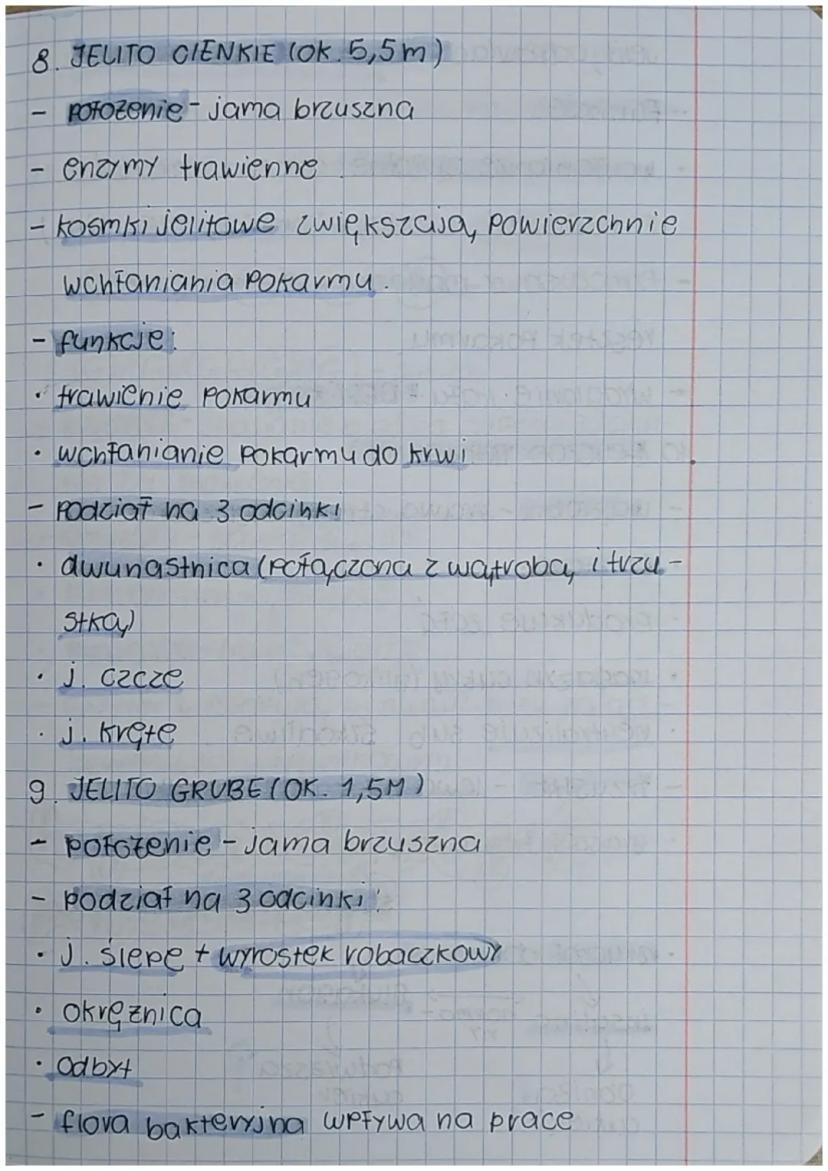 8. JELITO CIENKIE (OK. 5,5m)
- położenie - jama brzuszna
- enzymy trawienne
- kosmki jelitowe zwiększają powierzchnie
wchłaniania pokarmu.
- funkcje:
• trawienie pokarmu
• wchłanianie pokarmu do krwi
- podział na 3 odcinki
• dwunastnica (połączona z wątrobą i trzu-
stką)
• j. czcze
• j. kręte
9. JELITO GRUBE (OK. 1,5M)
- położenie - jama brzuszna
- podział na 3 odcinki:
• j. ślepe + wyrostek robaczkowy
• okrężnica
• odbyt
- flora bakteryjna wpływa na prace